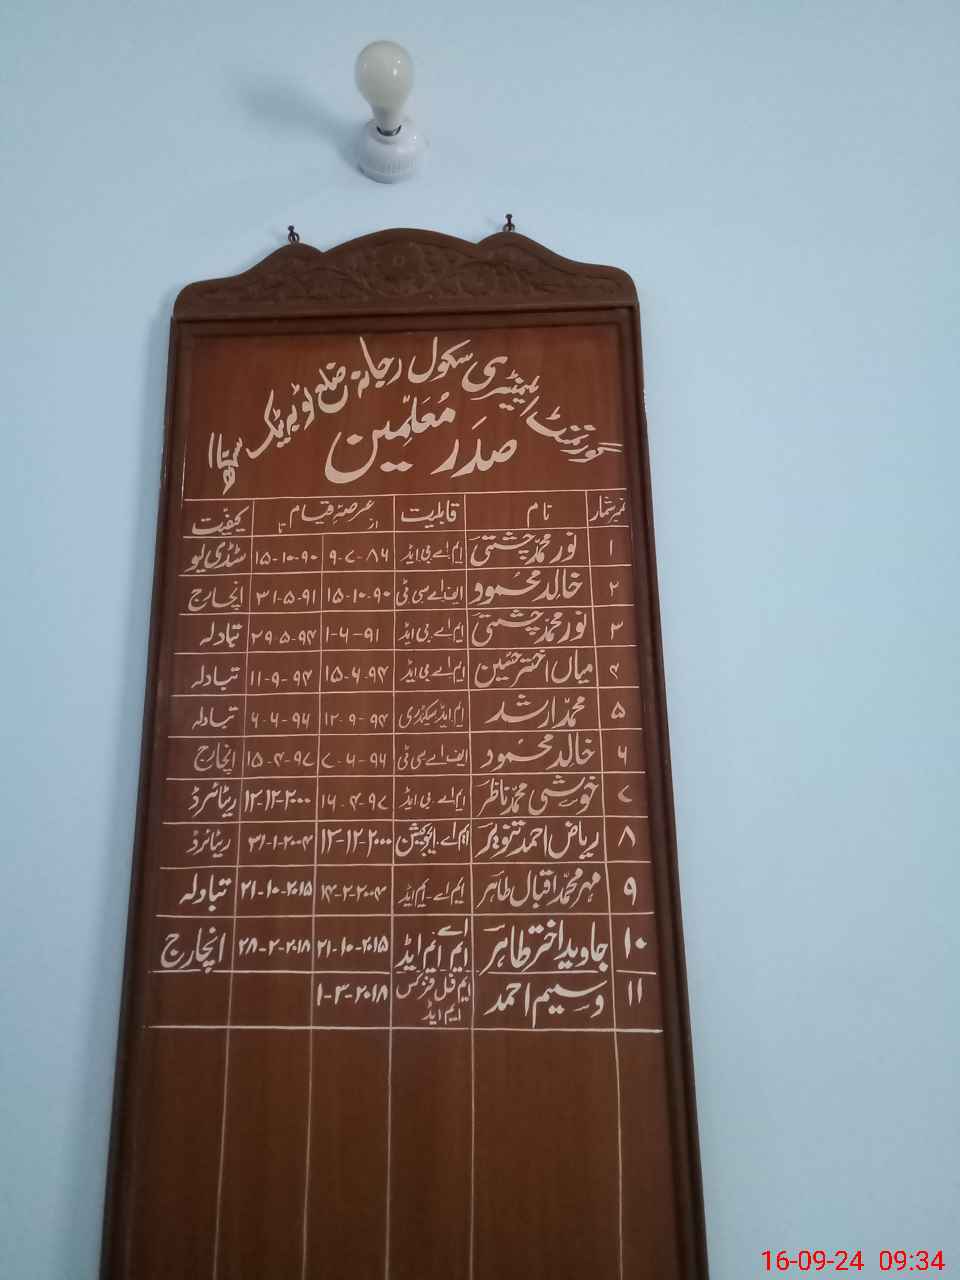 گورنمنٹ ایلیمنٹری سکول رجانہ ضلع ٹوبہ ٹیک سنگھ
صدر معلمین
نمبر شمار نام قابلیت عرصہ قیام کیفیت
از تا
۱ نور محمد چشتی ایم اے بی ایڈ ۹-۷-۸۶ ۱۵-۱۰-۹۰ سٹڈی لیو
۲ خالد محمود ایف اے سی ٹی ۱۵-۱۰-۹۰ ۳۱-۵-۹۱ انچارج
۳ نور محمد چشتی ایم اے بی ایڈ ۱-۶-۹۱ ۲۹-۵-۹۴ تبادلہ
۴ میاں اختر حسین ایم اے بی ایڈ ۱۵-۶-۹۴ ۱۱-۹-۹۴ تبادلہ
۵ محمد ارشد ایم ایڈ سیکنڈری ۱۲-۹-۹۴ ۶-۶-۹۶ تبادلہ
۶ خالد محمود ایف اے سی ٹی ۷-۶-۹۶ ۱۵-۴-۹۷ انچارج
۷ خوشی محمد ناظر ایم اے بی ایڈ ۱۶-۴-۹۷ ۱۲-۱۲-۲۰۰۰ ریٹائرڈ
۸ ریاض احمد تنویر ایم اے ایجوکیشن ۱۲-۱۲-۲۰۰۰ ۳۱-۱-۲۰۰۴ ریٹائرڈ
۹ مہر محمد اقبال طاہر ایم اے ایم ایڈ ۱۴-۲-۲۰۰۴ ۲۱-۱۰-۲۰۱۵ تبادلہ
۱۰ جاوید اختر طاہر ایم اے ایم ایڈ ۲۱-۱۰-۲۰۱۵ ۲۸-۲-۲۰۱۸ انچارج
۱۱ وسیم احمد ایم فل فزکس ایم ایڈ ۱-۳-۲۰۱۸
16-09-24 09:34